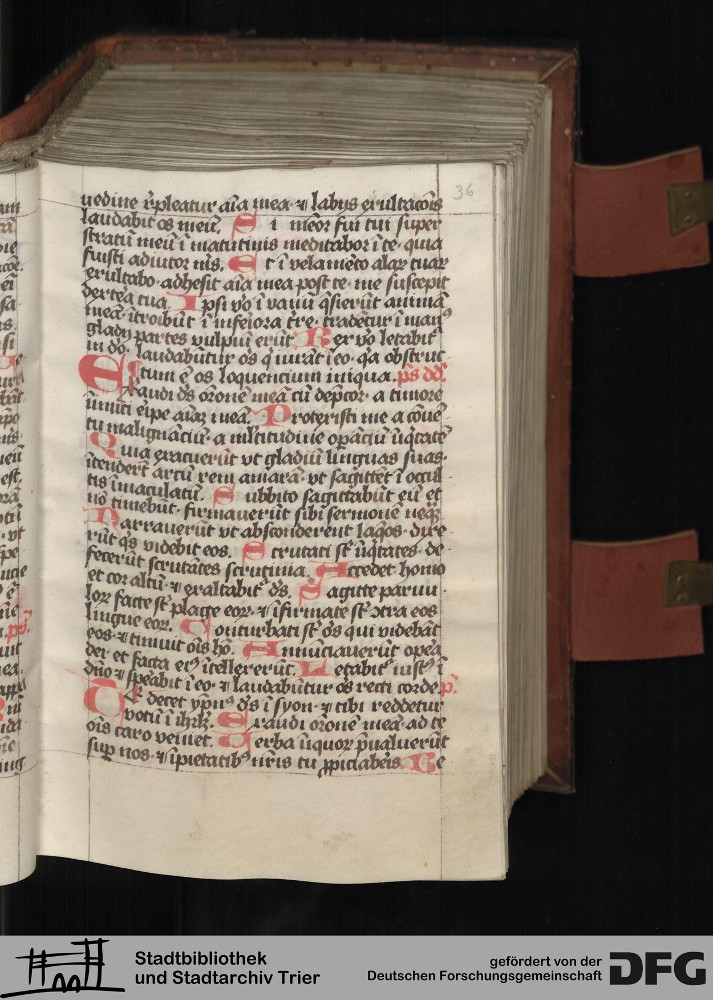 36
uedine rͤpleatur aīa mea· ⁊ labijs exultacōis
laudabit os meū. Si meōr fui tui super
stratū meū ī matutinis meditabor ī te· quia
fuisti adiutor mſs. Et ī velamēto alaꝝ tuaꝝ
exultabo· adhesit aīa mea post te· me suscepit
dextera tua. Ipsi v̊o ī vanū q̄sierūt animā
meā· ītroibūt ī inferiora tr̄e· tradētur ī manꝰ
gladij partes vulpiū erūt Rex v̊o letabit᷑
in dō· laudabūtur os̄ q̇ iurāt ī eo· q̇a obstruc
tum ē os loquencium iniqua. p̄s dd̄.
Exaudi ds̄ orōnē meā cū dep̄cor· a timore
inīmici eripe aīaꝫ meā. Protexisti me a cōue
tu malignāciū· a ml̄titudine opāciū īiq̇tatē
Quia exacuerūt vt gladiū linguas suas·
ītenderūt arcū rem amarā· vt sagittēt ī occul
tis īmaculatū. Subbito sagittabūt eū et
nō timebūt· firmauerūt sibi sermonē neq̄ꝫ
Narrauerūt vt absconderent laq̇os· dixe
rūt q̇s videbit eos. Scrutati st̄ īiq̇tates· de
fecerūt scrutātes scrutinia. Accedet homo
et cor altū· ⁊ exaltabit᷑ ds̄. Sagitte paruu
loꝝ facte st̄ plage eoꝝ· ⁊ īfirmate st̄ ꝯtra eos
lingue eoꝝ. Conturbati st̄ oēs qui videbāt
eos· ⁊ timuit oīs hō. Annūciauerūt opera
dei et facta eiꝰ ītellexerūt. Letabit᷑ iustꝰ ī
dn̄o ⁊ sꝑabit ī eo· ⁊ laudabūtur oēs recti corde p̄.
Te decet ypn̄ꝰ ds̄ ī syon· ⁊ tibi reddetur
votū ī ihrl̄ꝫ. Exaudi orōnē meā· ad te
oīs caro veniet. Verba īiquoꝝ p̄ualuerūt
suꝑ nos· ⁊ īpietatibꝰ nr̄is tu ꝓpiciaberis. Be
Stadtbibliothek
und Stadtarchiv Trier
gefördert von der
Deutschen Forschungsgemeinschaft
DFG